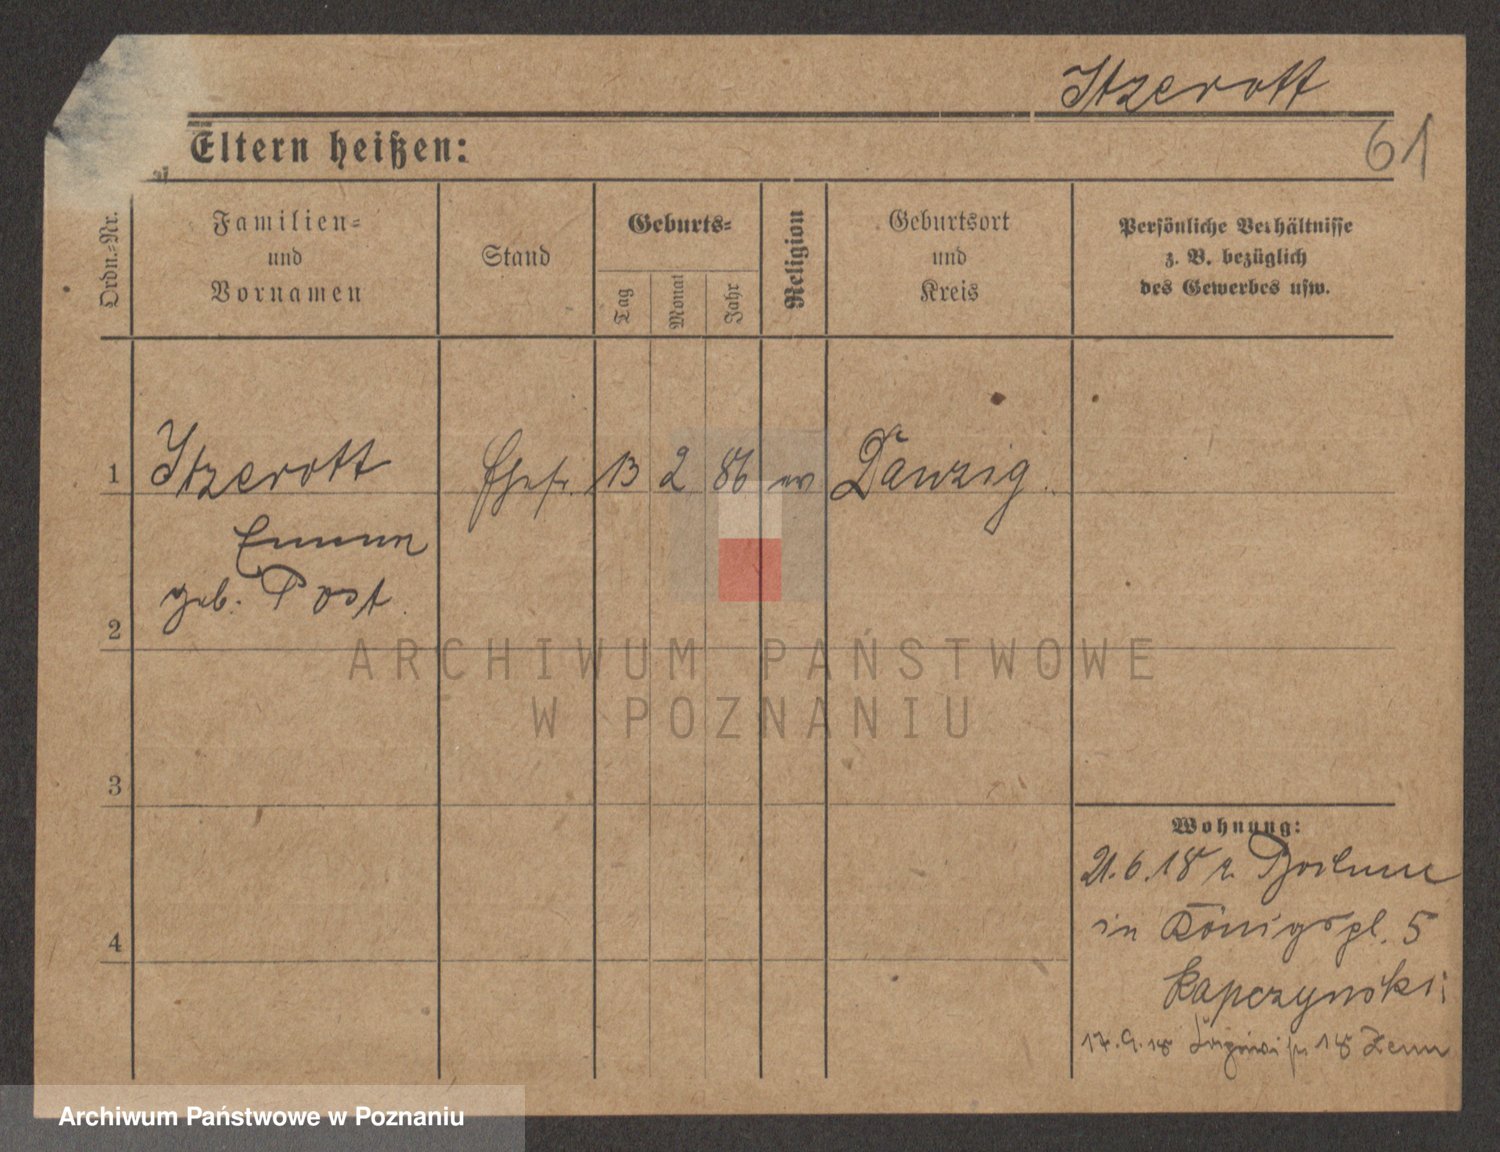 Itzerott
61
Eltern heißen:
Ordn.-Nr.
Familien-
und
Vornamen
Stand
Geburts-
Tag
Monat
Jahr
Religion
Geburtsort
und
Kreis
Persönliche Verhältnisse
z. B. bezüglich
des Gewerbes usw.
1 Itzerott Ehefr. 13 2 86 ev Danzig.
Emma
geb. Post
2
3
4
Wohnung:
21.6.18 v.
in Königspl. 5
Kapczynski
17.9.18 18
ARCHIWUM PAŃSTWOWE
W POZNANIU
Archiwum Państwowe w Poznaniu